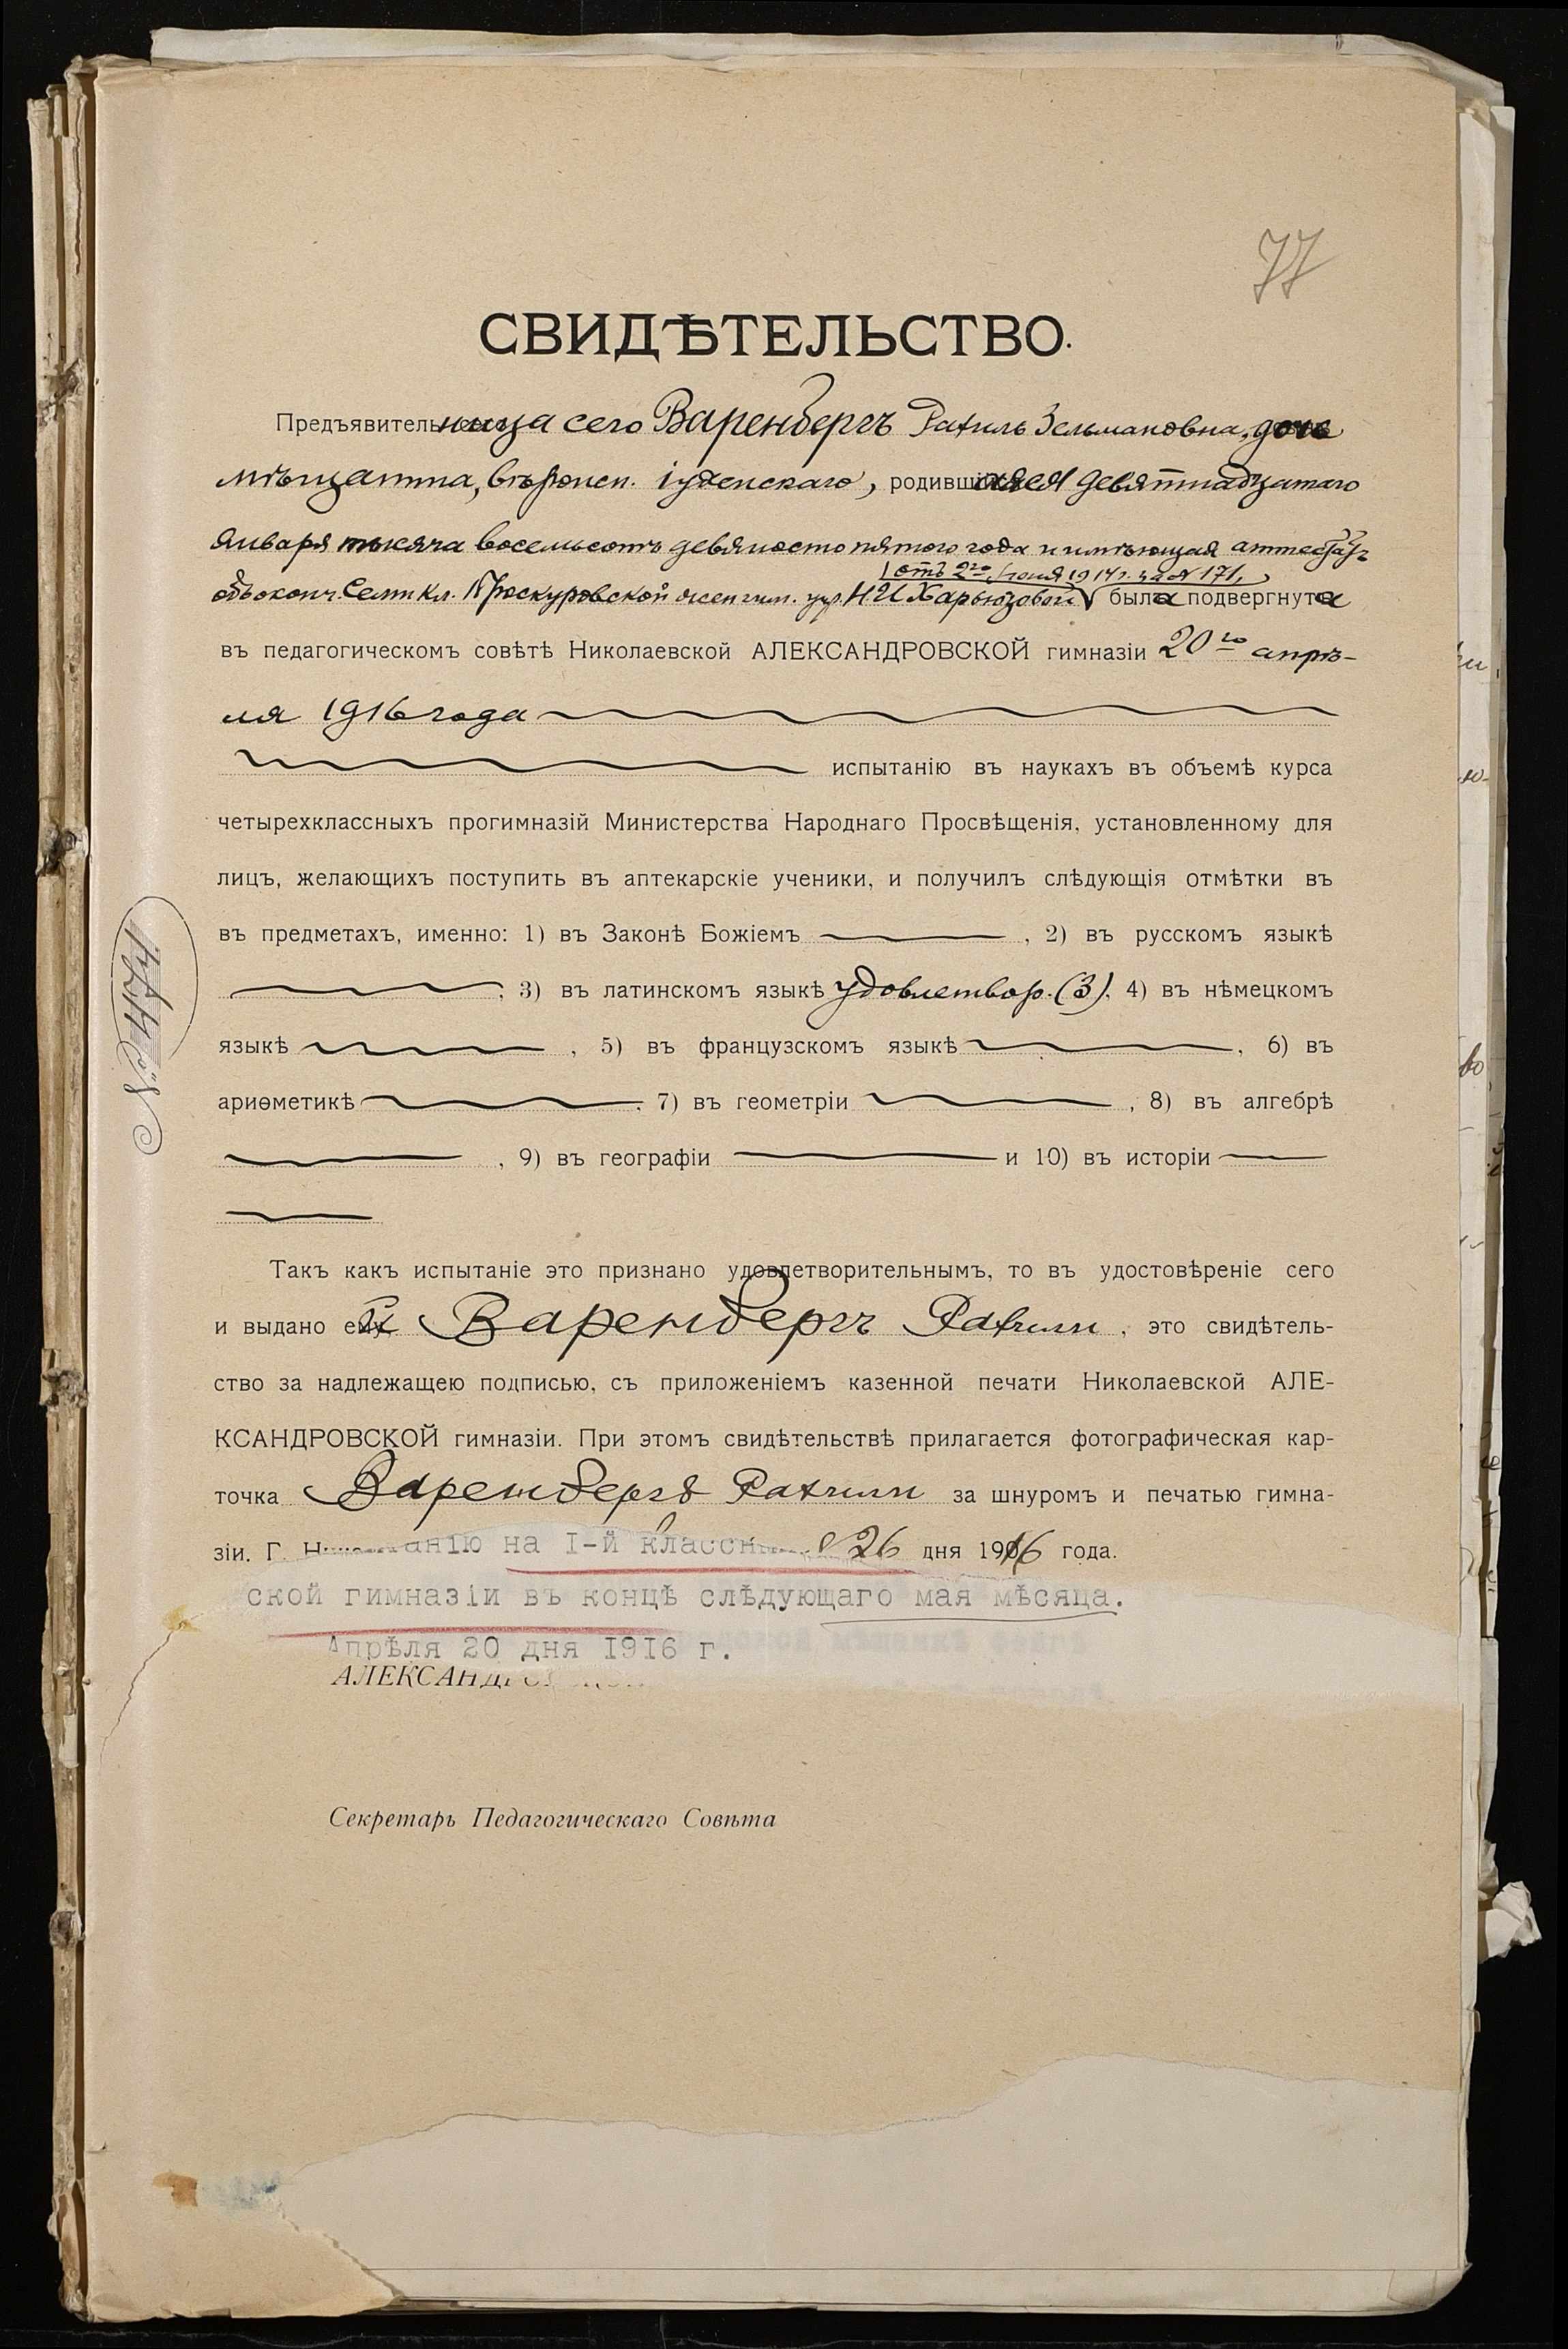 77
СВИДѢТЕЛЬСТВО.
Предъявительница сего Варенбергъ Рахиль Зельмановна, дочь
мѣщанина, вѣроисп. іудейскаго, родившаяся девятнадцатаго
января тысяча восемьсотъ девяносто пятого года и имѣющая аттестатъ
отъ 2го іюня 1914 г. за № 171,
объ оконч. семи кл. Проскуровской жен. гим. учр. Н. И. Харьюзовой была подвергнута
въ педагогическомъ совѣтѣ Николаевской АЛЕКСАНДРОВСКОЙ гимназіи 20го апрѣ-
ля 1916 года
испытанію въ наукахъ въ объемѣ курса
четырехклассныхъ прогимназій Министерства Народнаго Просвѣщенія, установленному для
лицъ, желающихъ поступить въ аптекарскіе ученики, и получилъ слѣдующія отмѣтки въ
въ предметахъ, именно: 1) въ Законѣ Божіемъ , 2) въ русскомъ языкѣ
, 3) въ латинскомъ языкѣ удовлетвор. (3), 4) въ нѣмецкомъ
языкѣ , 5) въ французскомъ языкѣ , 6) въ
ариѳметикѣ , 7) въ геометріи , 8) въ алгебрѣ
, 9) въ географіи и 10) въ исторіи
Такъ какъ испытаніе это признано удовлетворительнымъ, то въ удостовѣреніе сего
и выдано ей Варенбергъ Рахили , это свидѣтель-
ство за надлежащею подписью, съ приложеніемъ казенной печати Николаевской АЛЕ-
КСАНДРОВСКОЙ гимназіи. При этомъ свидѣтельствѣ прилагается фотографическая кар-
точка Варенбергъ Рахили за шнуромъ и печатью гимна-
зіи. Г. анію на I-й классн 26 дня 1916 года.
ской гимназіи въ концѣ слѣдующаго мая мѣсяца.
Апрѣля 20 дня 1916 г.
АЛЕКСАНД
Секретарь Педагогическаго Совѣта